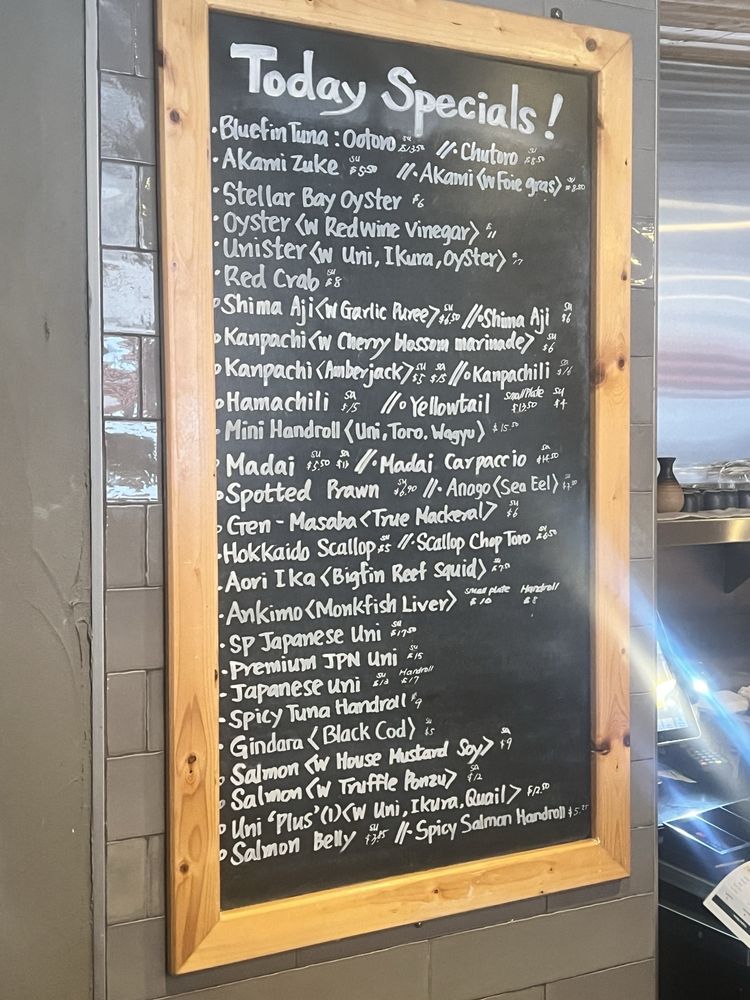 Today Specials!
• Bluefin Tuna : Ootoro su $13.50 //• Chutoro su $8.50
• Akami Zuke su $5.50 //• Akami <w Foie gras> su
• Stellar Bay Oyster $6
• Oyster <w Red Wine Vinegar>
• Unister <w Uni, Ikura, Oyster>
• Red Crab su $8
• Shima Aji <w Garlic Puree> su $6.50 //• Shima Aji su $6
• Kanpachi <w Cherry blossom marinade> su $6
• Kanpachi <Amberjack> su $5 sa $15 //• Kanpachili sa $16
• Hamachili sa $15 //• Yellowtail small Plate $13.50 su $4
• Mini Handroll <Uni, Toro, Wagyu> $15.50
• Madai su $5.50 sa //• Madai Carpaccio sa
• Spotted Prawn su $6.90 //• Anago <Sea Eel> su
• Gen-Masaba <True Mackeral> su $6
• Hokkaido Scallop su $5 //• Scallop Chop Toro su $6.50
• Aori Ika <Bigfin Reef Squid> su
• Ankimo <Monkfish Liver> small plate $10 Handroll $8
• SP Japanese Uni su $17.50
• Premium JPN Uni su $15
• Japanese Uni su Handroll $17
• Spicy Tuna Handroll $9
• Gindara <Black Cod> su $5
• Salmon <w House Mustard Soy> sa $9
• Salmon <w Truffle Ponzu> sa $12
• Uni 'Plus' (1) <w Uni, Ikura, Quail> $12.50
• Salmon Belly su //• Spicy Salmon Handroll